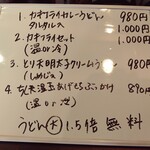 1. カキフライカレーうどん 980円
タルタルス 1.000円
2. カキフライセット 1.000円
(温or冷)
3. とり天明太子クリームうどん 980円
(しめじ入)
4. ちく天温玉あげもちぶっかけ 890円
(温or冷)
うどん大 1.5倍 無料